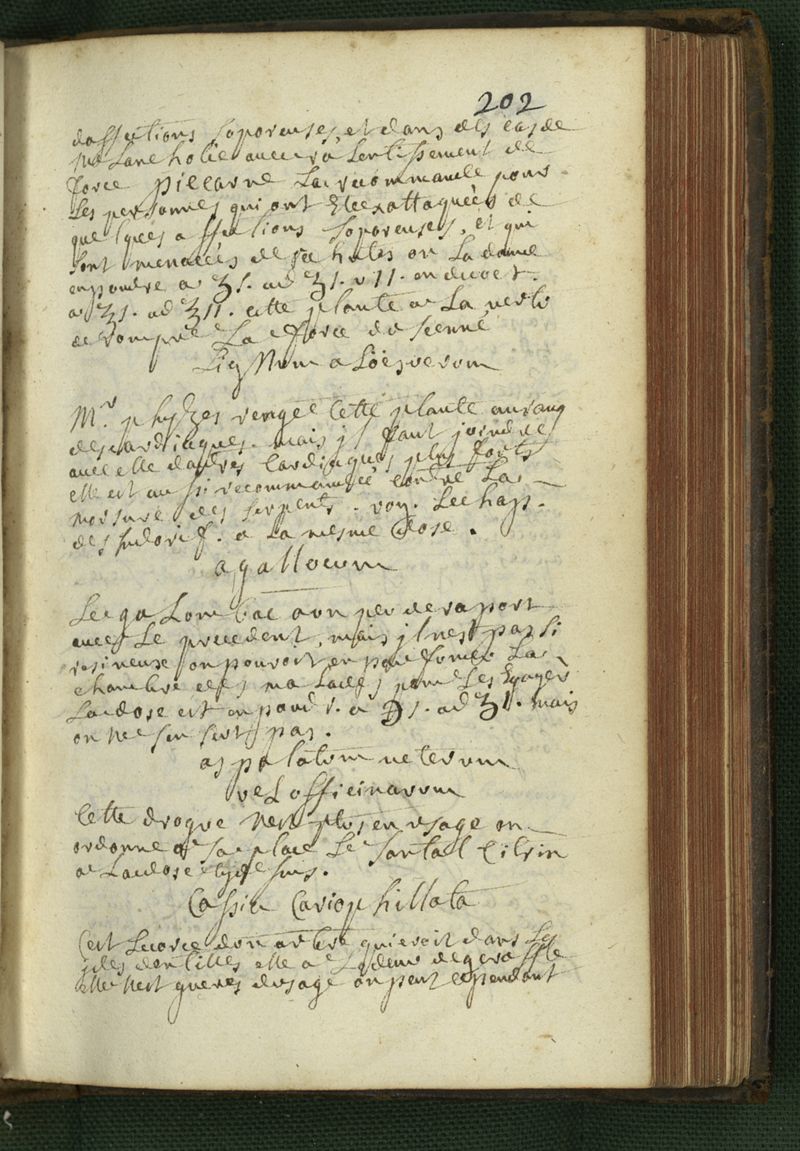 202
daffections soporeuses, et dans des cas de
melancholie avec ralentissement de
force pitcarne la recommande pour
les personnes qui ont etez attaquées de
quelques affections soporeuses, et qui
sont menacées de rechutes on la donne
en poudre a ʒ s. ad ʒ i. v ii. en decoct.
a ʒ i. ad ʒ ii. cette plante a la vertu
de rompre la force du senné
Lignum aloës verum
Mr. phyzes range cette plante au rang
des cardiaques. mais jl faut joindre
avec elle dautres cardiaques plus forts
elle est aussi recommandée contre la
morsure des serpents. voy. le chap.
des sudorif. a la mesme dose.
agallocum
Le calombac a un peu de raport
avec le precedent, mais jl nest pas si
resineux on pourroit en parfumer la
chambre des malades pour les Egayer
La dose est en poud. a ℈ i. ad ʒ i. mais
on ne sen sert pas.
aspalatum veterum
vel officinarum
Cette drogue nest plus en usage on
ordonne a sa place le santal citrin
a la dose
Cassia Cariophillata
Cest lecorce dun arbre qui croit dans les
jsles dentilles elle a lodeur de geroffle
elle nest gueres dusage on peut cependant